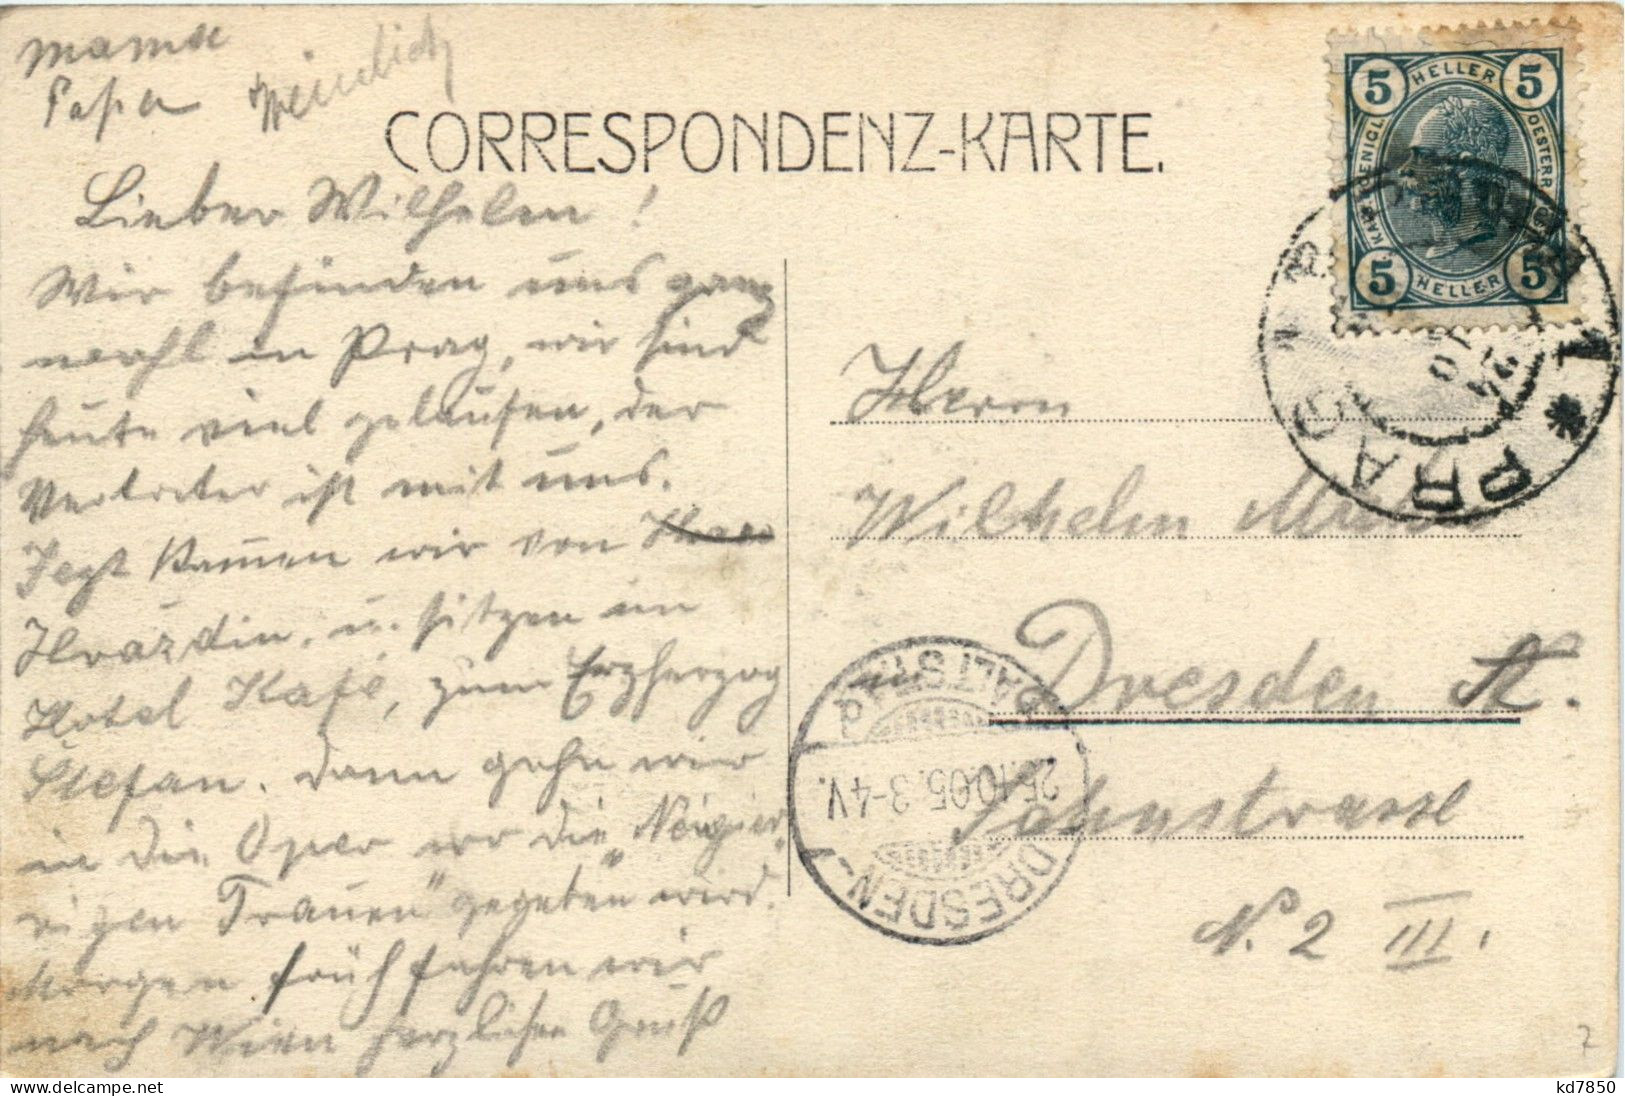 Mama
Papa Heinrich
CORRESPONDENZ-KARTE.
Lieber Wilhelm!
Wir befinden uns ganz
wohl in Prag, wir sind
heute viel gelaufen, der
Vertreter ist mit uns.
Jetzt kamen wir von
Hradzin. u. sitzen im
Hotel Kafé, zum Erzherzog
Stefan. Dann gehn wir
in die Oper wo die „Neugier
rigen Frauen" gegeben wird.
Morgen früh fahren wir
nach Wien herzlichen Gruß
5 HELLER 5
KAIS. KOENIGL. OESTERR.
5 HELLER 5
PRAG 1
24 10
Herrn
Wilhelm
Dresden A.
DRESDEN-
ALTSTADT
25.10.05. 3-4 V.
Johnstrasse
N. 2 III.
7
kd7850